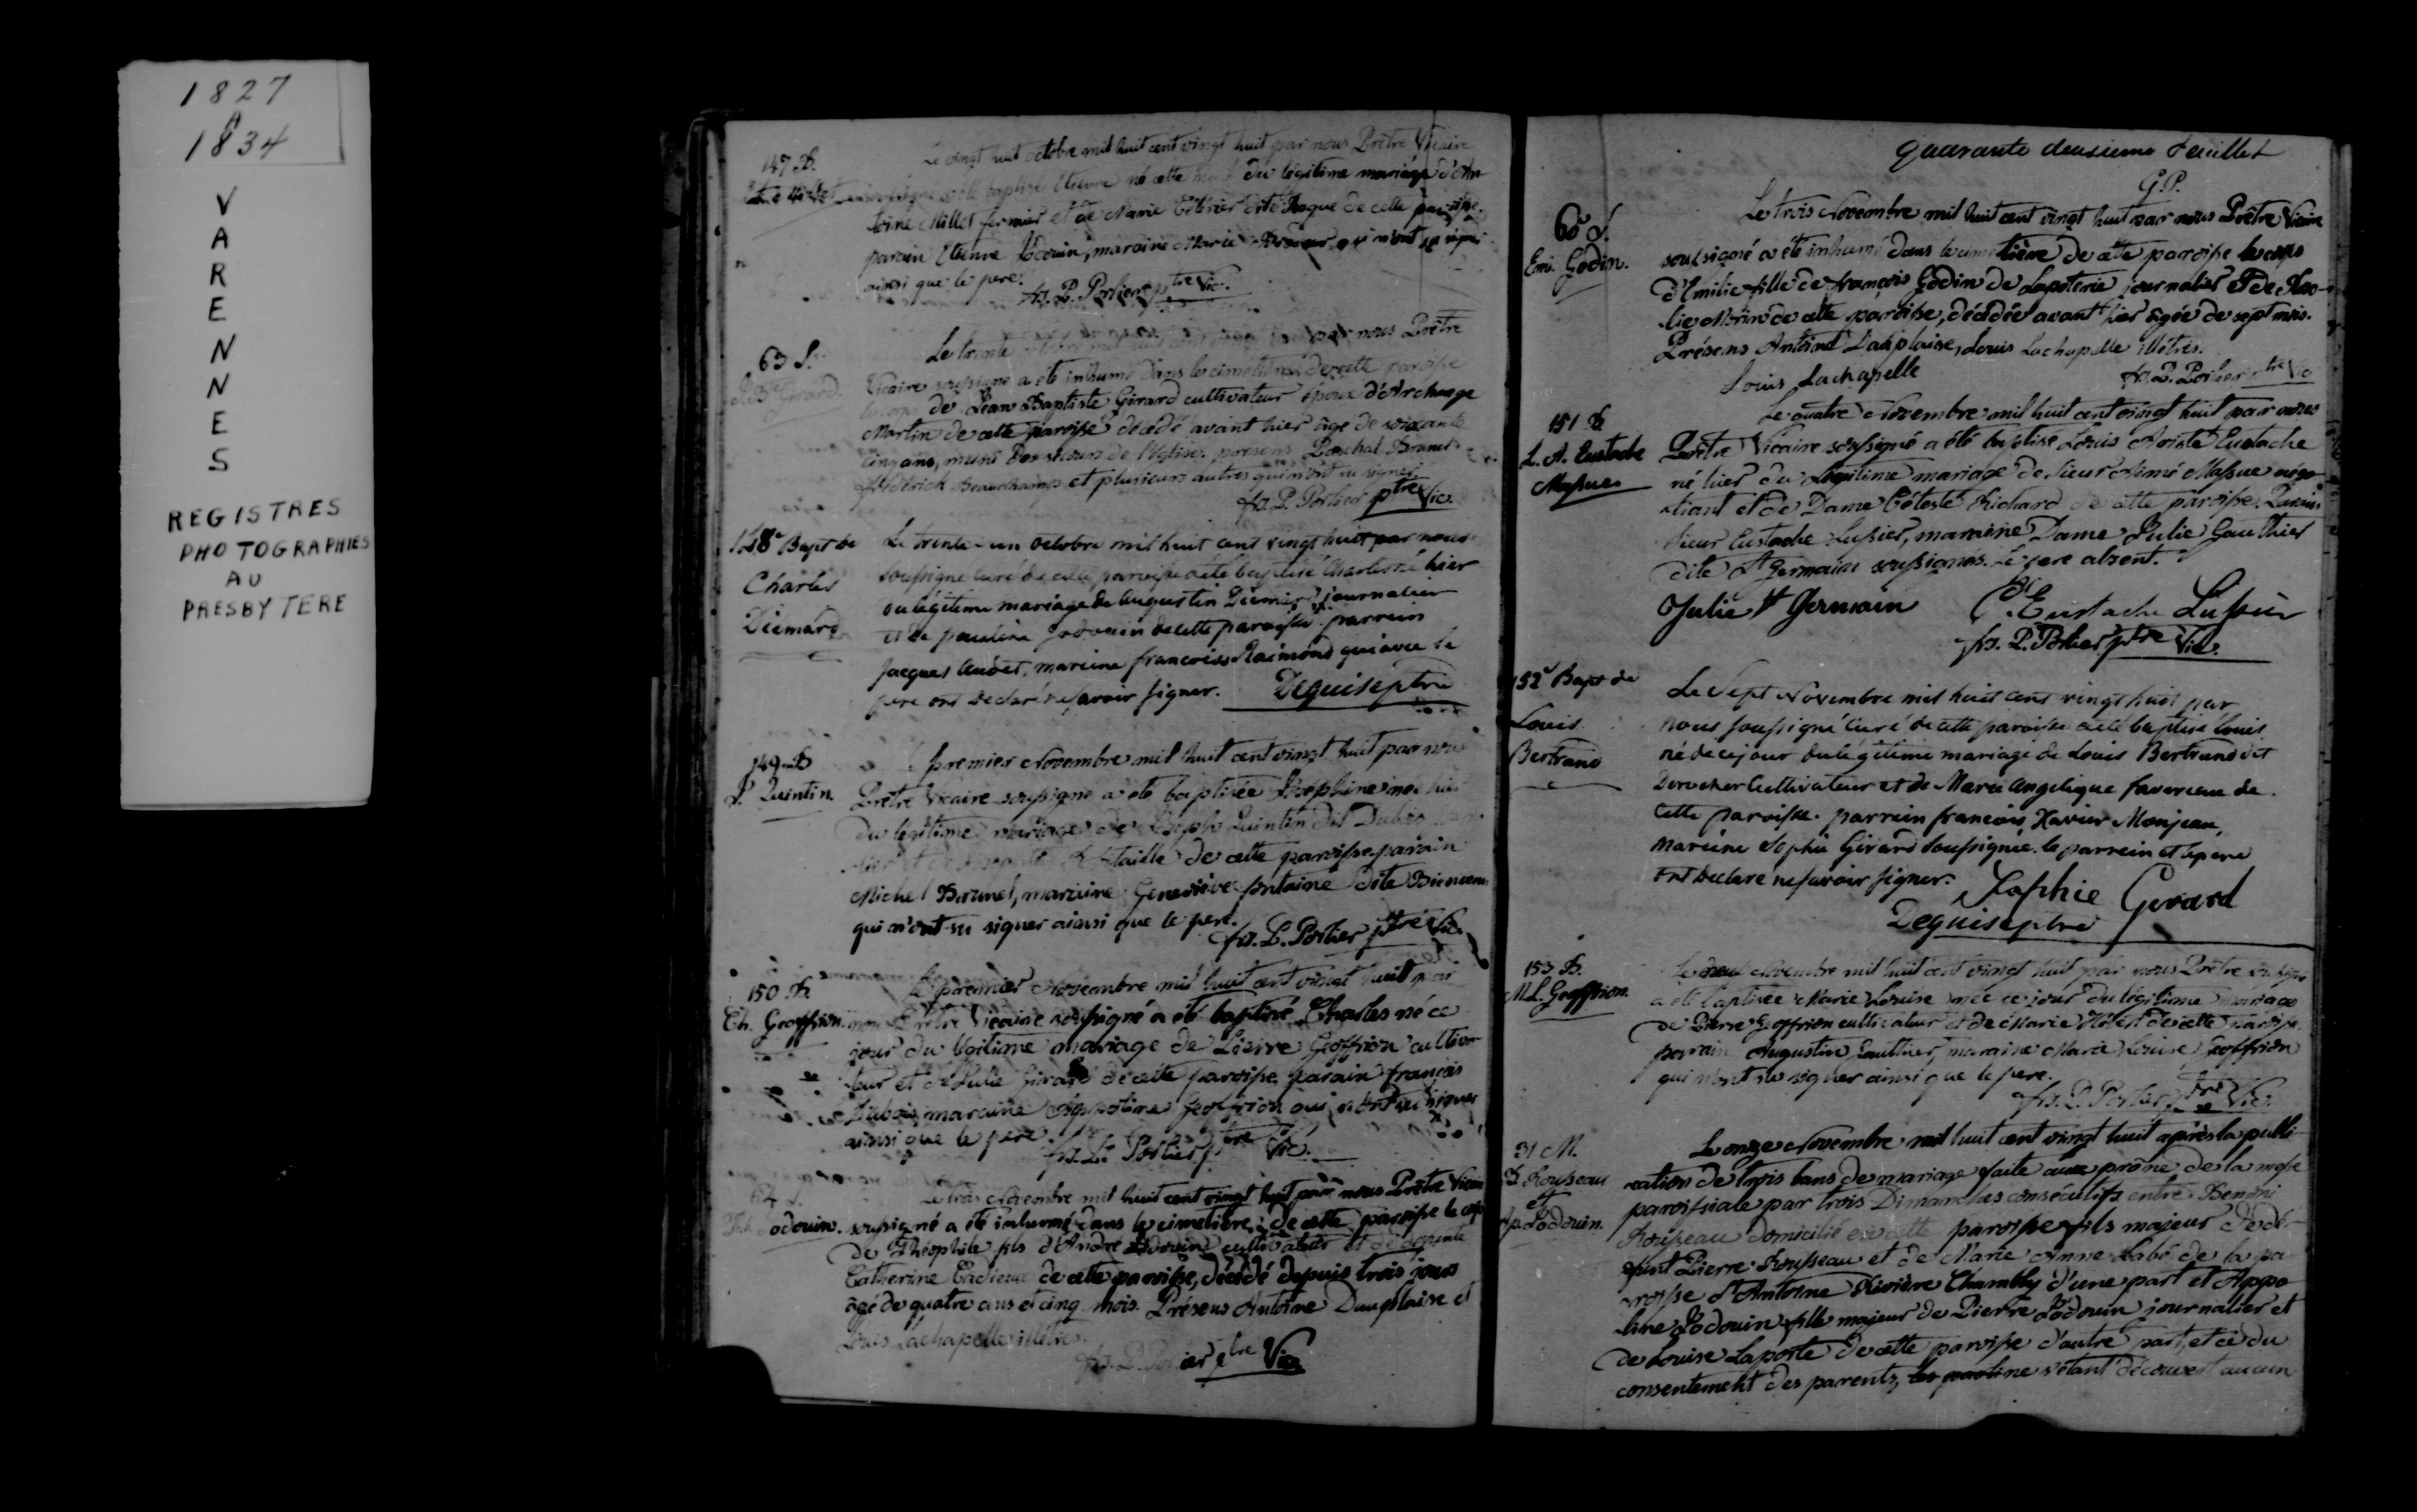 1827
A
1834
V
A
R
E
N
N
E
S
REGISTRES
PHOTOGRAPHIES
AU
PRESBYTERE
147 B.
Le vingt huit octobre mil huit cent vingt huit par nous Prêtre Vicaire
baptisé Etienne né cette du légitime mariage d'An-
toine Millet fermier et de Marie dite de cette paroisse
parain Etienne Lodouin, maraine Marie qui n'ont su signer
ainsi que le pere.
frs. P. Portier ptre Vic.
63 S.
J. Bte Girard.
Le trente nous Prêtre
Vicaire soussigné a été inhumé dans le cimetière de cette paroisse
le corps de Jean Baptiste Girard cultivateur époux d'Archange
Martin de cette paroisse décédé avant hier âgé de soixante
cinq ans, muni des secours de l'Eglise. présens Paschal Brunet
frédérick Beauchamp et plusieurs autres qui n'ont su signer
frs. P. Portier ptre Vic.
148e Bapt de
Charles
Diemard
Le trente-un octobre mil huit cent vingt huit par nous
soussigné curé de cette paroisse a été baptisé Charles né hier
du légitime mariage de Augustin journalier
et de paulina de cette paroisse. parrein
Jacques Audet, mareine francoise Raimond qui avec le
pere ont déclaré ne savoir signer. Deguise ptre
149 B
J. Quintin.
Le premier Novembre mil huit cent vingt huit par nous
Prêtre Vicaire soussigné a été baptisée Josephine née hier
du légitime mariage de Joseph Quintin dit Dubois
de cette paroisse parain
Michel Brunel, maraine Geneviève fontaine dite Bienvenu
qui n'ont su signer ainsi que le pere.
frs. P. Portier ptre Vic.
150 B.
Ch. Geoffrion.
Le premier Novembre mil huit cent vingt huit par
nous Prêtre Vicaire soussigné a été baptisé Charles né ce
jour du légitime mariage de Pierre Geoffrion cultiva-
teur et de Julie Girard de cette paroisse parain françois
Dubois, maraine Appoline Geoffrion qui n'ont su signer
ainsi que le pere.
frs. P. Portier ptre Vic.
64 S.
Lodouin.
Le trois Novembre mil huit cent vingt huit par nous Prêtre Vicaire
soussigné a été inhumé dans le cimetière de cette paroisse le corps
de Théophile fils d'André Lodouin cultivateur et de défunte
Catherine Cadieux de cette paroisse, décédé depuis trois jours
âgé de quatre ans et cinq mois. Présens Antoine Dauplaise et
Louis Lachapelle illétrés.
frs. P. Portier ptre Vic
quarante deuxieme feuillet
G.P.
65 S.
Emi. Godin.
Le trois Novembre mil huit cent vingt huit par nous Prêtre Vicaire
soussigné a été inhumé dans le cimetière de cette paroisse le corps
d'Emilie fille de françois Godin de Lapoterie journalier et de
-lie Morin de cette paroisse, décédée avant hier âgée de sept mois.
Présens Antoine Dauplaise, Louis Lachapelle illétrés.
Louis Lachapelle
frs. P. Portier ptre Vic
151 B
L. A. Eustache
Massue
Le quatre Novembre mil huit cent vingt huit par nous
Prêtre Vicaire soussigné a été baptisé Louis Eustache
né hier du légitime mariage de Sieur Aimé Massue négo-
tiant et de Dame Céleste Richard de cette paroisse. Parain
Sieur Eustache Lussier, maraine Dame Julie Gauthier
dite St Germain soussignés. Le pere absent.
Julie St Germain
Eustache Lussier
frs. P. Portier ptre Vic.
152e Bapt de
Louis
Bertrand
Le Sept Novembre mil huit cent vingt huit par
nous soussigné curé de cette paroisse a été baptisé Louis
né de ce jour du légitime mariage de Louis Bertrand dit
Derocher cultivateur et de Marie Angelique favereau de
cette paroisse. parrein francois Xavier Monjeau,
mareine Sophie Girard soussignée. le parrein et le pere
ont declaré ne savoir signer.
Sophie Gerard
Deguise ptre
153 B.
M.L. Geoffrion.
Le neuf Novembre mil huit cent vingt huit par nous Prêtre soussigné
a été baptisée Marie Louise née ce jour du légitime mariage
de Pierre Geoffrion cultivateur et de Marie Hébert de cette paroisse.
parrain Augustin Gauthier, maraine Marie Louise Geoffrion
qui n'ont su signer ainsi que le pere.
frs. P. Portier ptre Vic.
31 M.
B. Rousseau
et
Ap. Lodouin.
Le onze Novembre mil huit cent vingt huit après la publi-
cation de trois bans de mariage faite au prône de la messe
paroissiale par trois Dimanches consécutifs entre Benoni
Rousseau domicilié en cette paroisse fils majeur de dé-
funt Pierre Rousseau et de Marie Anne Labé de la pa-
roisse St Antoine Rivière Chambly d'une part et Appo-
line Lodouin fille majeur de Pierre Lodouin journalier et
de Louise Laporte de cette paroisse d'autre part, et ce du
consentement des parents, ne s'étant découvert aucun